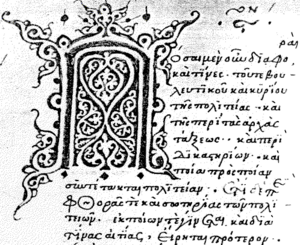 ραὶ
Π όσαι μὲν οὖν διαφο
καὶ τίνες· τοῦ τε βου
λευτικοῦ καὶ κυρίου
τῆς πολιτείας· καὶ
τῆς περὶ τὰς ἀρχὰς
τάξεως· καὶ περὶ
δικαστηρίων· καὶ
ποία πρὸς ποίαν
συντέτακται πολιτείαν· ἔτι δὲ περὶ
φθορᾶς τε καὶ σωτηρίας τῶν πολι
τειῶν· ἐκ ποίων τε γίνεται καὶ διὰ
τίνας αἰτίας, εἴρηται πρότερον·